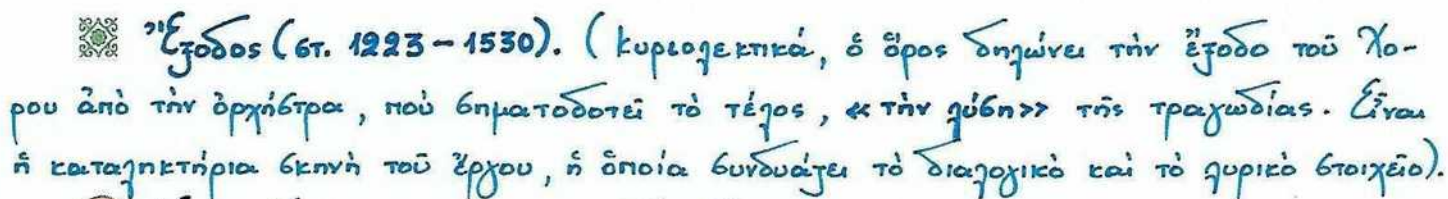 Ἔξοδος (στ. 1223 – 1530). (Κυριολεκτικά, ὁ ὅρος δηλώνει τὴν ἔξοδο τοῦ Χο-
ρου ἀπὸ τὴν ὀρχήστρα, ποὺ σηματοδοτεῖ τὸ τέλος, «τὴν λύση» τῆς τραγωδίας. Εἶναι
ἡ καταληκτήρια σκηνὴ τοῦ ἔργου, ἡ ὁποία συνδυάζει τὸ διαλογικὸ καὶ τὸ λυρικὸ στοιχεῖο).